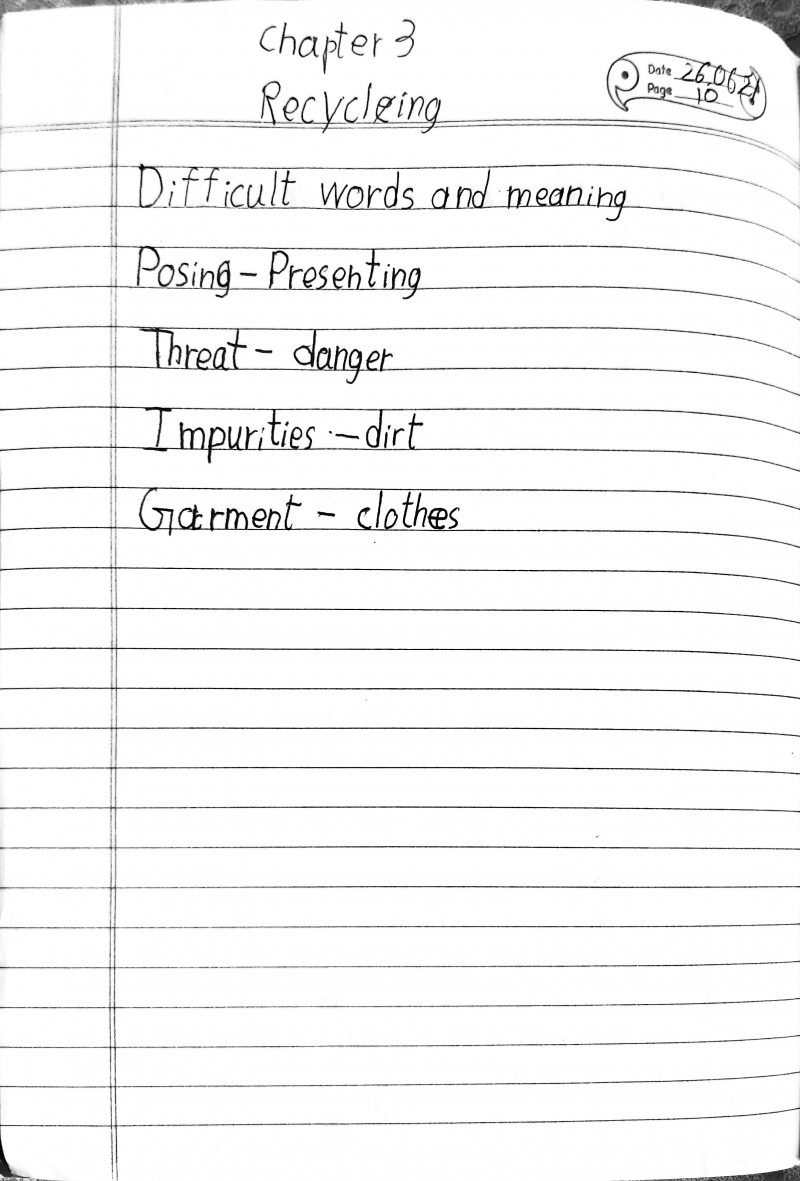 Chapter 3
Date 26.06.21
Page 10
Recycleing
Difficult words and meaning
Posing - Presenting
Threat - danger
Impurities - dirt
Garment - clothes